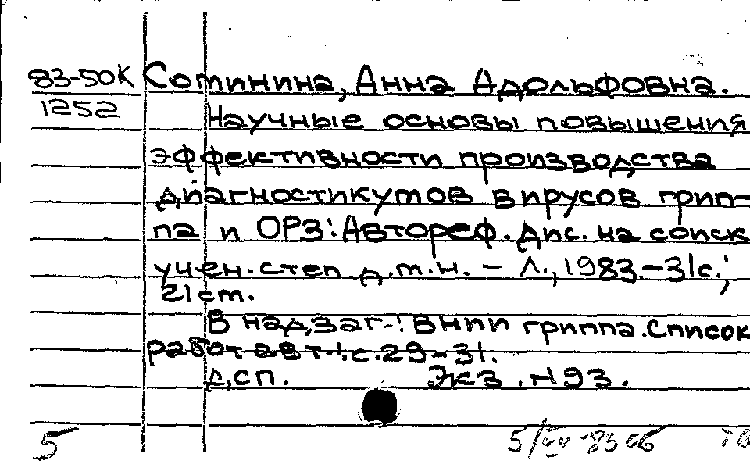 83-50К Сотинина, Анна Адольфовна.
1252 Научные основы повышения
эффективности производства
диагностикумов вирусов грип-
па и ОРЗ: Автореф. дис. на соиск
учен. степ д.т.н. - Л., 1983-31с.;
21 cm.
В надзаг.: ВНИИ гриппа. Список
работ авт.: с. 29-31.
Дсп. Экз. н 93.
5